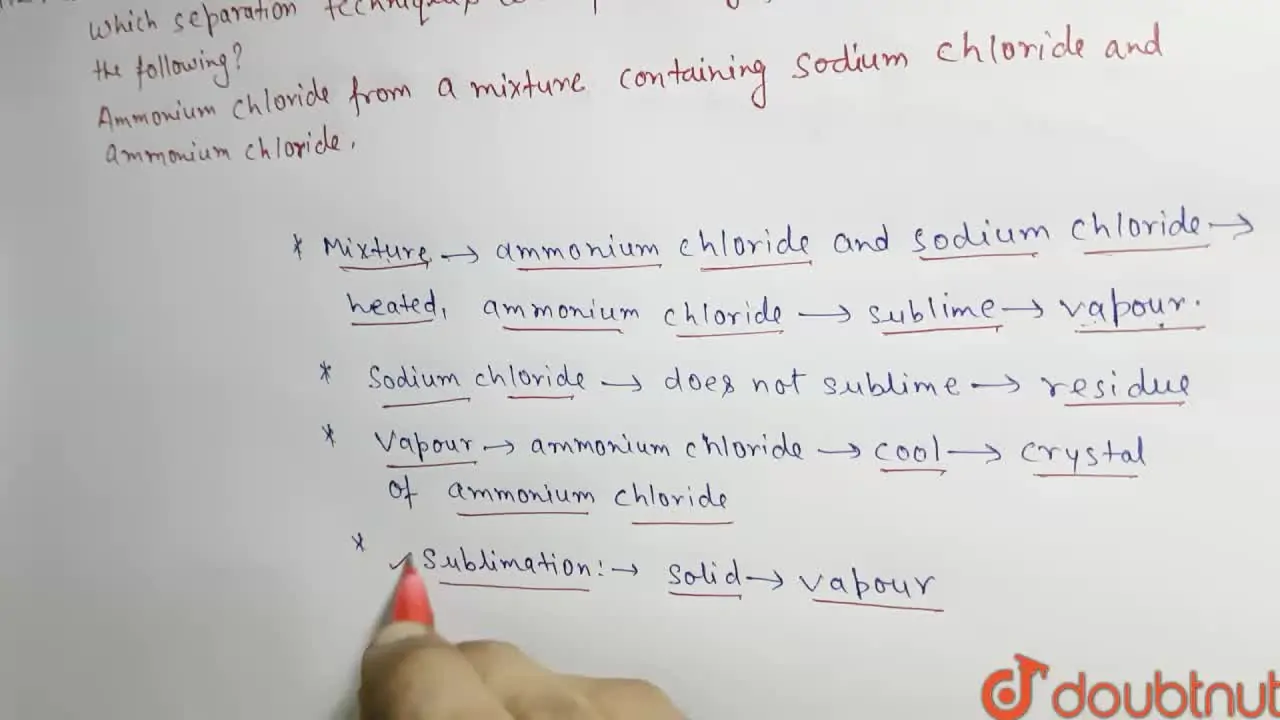 which separation
the following?
Ammonium chloride from a mixture containing sodium chloride and
ammonium chloride.
* Mixture → ammonium chloride and sodium chloride →
heated, ammonium chloride → sublime → vapour.
* Sodium chloride → does not sublime → residue
* Vapour → ammonium chloride → cool → crystal
of ammonium chloride
* ✓ Sublimation: → solid → vapour
doubtnut